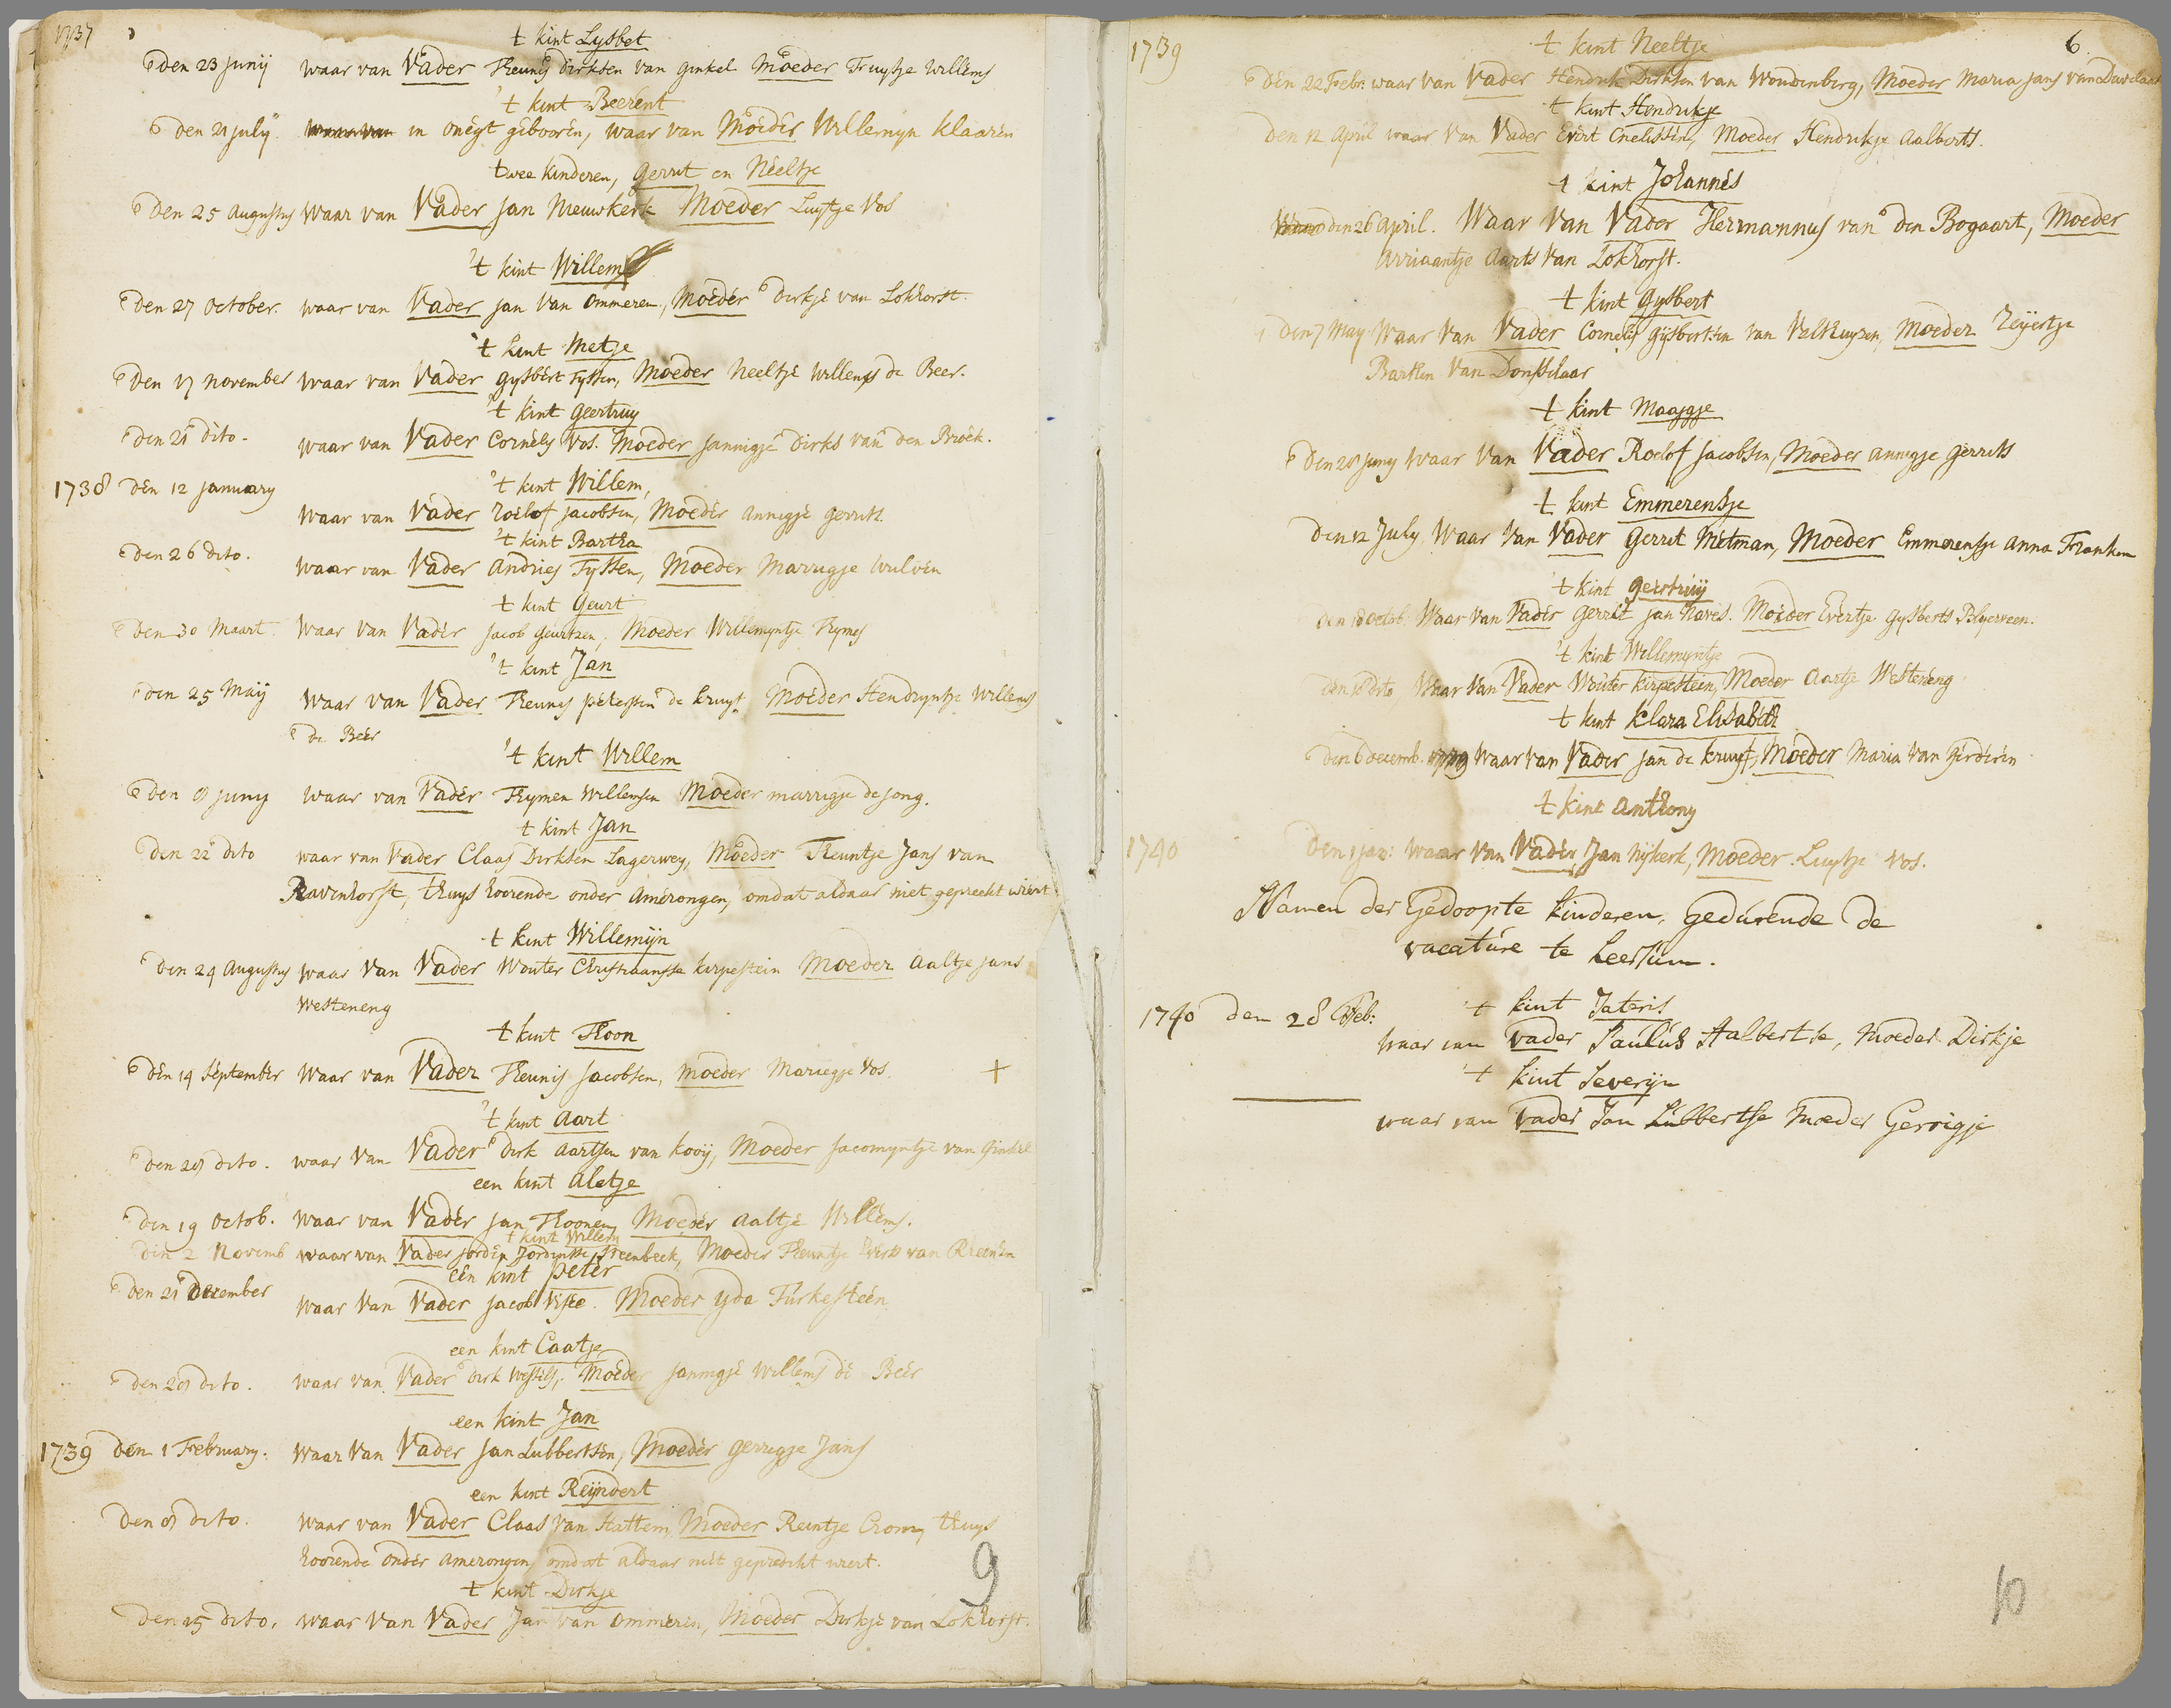 1737
't kint Lysbet
den 23 junij waar van Vader Theunis dirksen van ginkel Moeder Truytje Willems
't kint Beerent
den 21 july in onegt gebooren, waar van Moeder Willemyn Klaaren
twee kinderen, gerrit en Neeltje
den 25 augustus waar van Vader jan Nieuwkerk Moeder Luytje Vos
't kint Willem
den 27 october. waar van Vader jan van ommeren, Moeder dirkje van Lokhorst.
't kint Metje
den 17 november waar van Vader gysbert Tyssen, Moeder Neeltje Willems de Beer.
't kint geertruy
den 21 dito. waar van Vader Cornelis Vos. Moeder jannigje dirks van den Broek.
1738 den 12 january 't kint Willem,
waar van Vader roelof jacobsen, Moeder annigje gerrits.
't kint Bartha
den 26 dito. waar van Vader andries Tyssen, Moeder Marrigje Wulven
't kint geurt
den 30 Maart. waar van Vader jacob geurtzen, Moeder Willemyntje Thymes
't kint Jan
den 25 Maij waar van Vader Theunis petersen de kruyf. Moeder Hendryntje Willems
de Beer
't kint Willem
den 8 juny waar van Vader Thymen Willemsen Moeder marrigje de jong.
't kint Jan
den 22 dito waar van Vader Claas Dirksen Lagerwey, Moeder Theuntje Jans van
Ravenhorst, thuys hoorende onder amerongen, omdat aldaar niet gepreekt wiert
't kint Willemijn
den 24 augustus waar van Vader Wouter Christiaansse kirpestein Moeder aaltje jans
Westeneng
't kint Thoon
den 14 september waar van Vader Theunis jacobsen, moeder Mariegje Vos. +
't kint aart
den 28 dito. waar van Vader dirk aartsen van kooij, Moeder jacomyntje van ginkel
een kint aletje
den 19 octob. waar van Vader jan Thoonen, Moeder aaltje Willems.
't kint Willem
den 2 Novemb waar van Vader jorden Jordensse Steenbeek, Moeder Theuntje Everts van Rheenen
een kint peter
den 21 december waar van Vader jacob Visee. Moeder yda Turkesteen
een kint Caatje
den 28 dito. waar van Vader dirk Wessels, Moeder jannigje Willems de Beer
een kint Jan
1739 den 1 February. waar van Vader jan Lubbertsen, Moeder gerrigje Jans
een kint Reijndert
den 8 dito. waar van Vader Claas van Hattem, Moeder Reintje Crom, thuys
hoorende onder amerongen omdat aldaar niet gepredikt wiert.
't kint Dirkje
den 15 dito. waar van Vader Jan van ommeren, Moeder Dirkje van Lokhorst.
9
1739 't kint Neeltje 6.
den 22 Febr. waar van Vader Hendrik Dirksen van Woudenberg, Moeder Maria jans van
't kint Hendrikje
den 12 april waar van Vader Evert Cnelissen, Moeder Hendrikje aalberts.
't kint Johannes
den 26 april. Waar van Vader Hermannus van den Bogaart, Moeder
Arriaantje aarts van Lokhorst.
't kint gysbert
den 7 may Waar van Vader Cornelis gysbertsen van Velthuyzen, Moeder Zeijertje
Barthen van Donsselaar
't kint Maaggje
den 28 juny waar van Vader Roelof jacobsen, Moeder annigje gerrits
't kint Emmerensje
den 12 July, Waar van Vader gerrit Metman, Moeder Emmerensje anna Franken
't kint geertruij
den 18 octob. Waar van Vader gerrit jan haves. Moeder Evertje gysberts Blyerveen.
't kint Willemyntje
den 18 dito Waar van Vader Wouter kirpestein, Moeder aartje Westeneng
't kint Klara Elisabeth
den 6 decemb. 1739 Waar van Vader jan de kruyf, Moeder Maria van gerderen
't kint anthony
1740 den 1 jan: waar van Vader Jan Nijkerk, Moeder Luytje Vos.
Namen der Gedoopte kinderen, gedurende de
vacature te Leersum.
1740 den 28 Feb: 't kint
waar van vader Paulus Aalbertse, moeder Dirkje
't kint Severijn
waar van vader Jan Lubbertse moeder Gerrigje
10